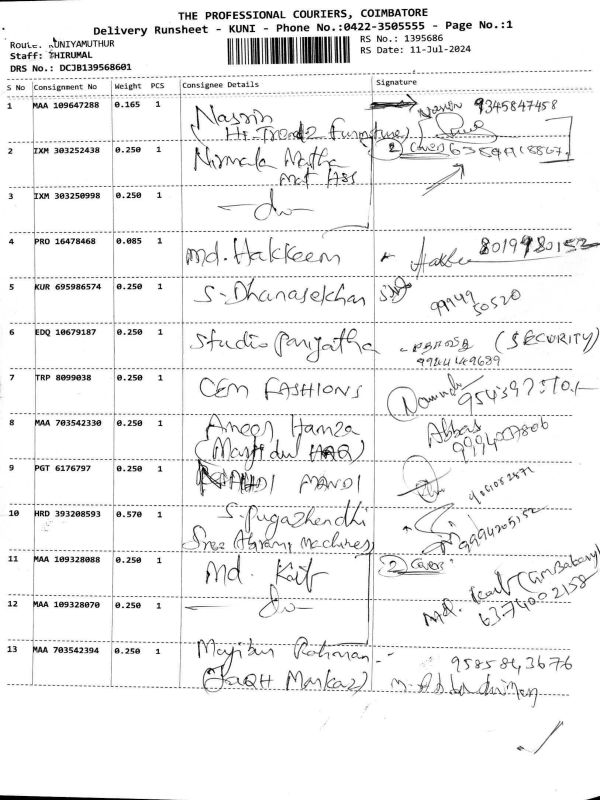 THE PROFESSIONAL COURIERS, COIMBATORE
Delivery Runsheet - KUNI - Phone No.:0422-3505555 - Page No.:1
Route: KUNIYAMUTHUR
RS No.: 1395686
Staff: THIRUMAL
RS Date: 11-Jul-2024
DRS No.: DCJB139568601
S No Consignment No Weight PCS Consignee Details Signature
1 MAA 109647288 0.165 1 Nasrin 9345847458
Hi-Trendz Furniture)
2 IXM 303252438 0.250 1 Nirmala Matha (2) covers
Mat HSS
3 IXM 303250998 0.250 1 - do -
4 PRO 16478468 0.085 1 Md. Hakkeem 8019980152
5 KUR 695986574 0.250 1 S. Dhanasekhar
99949
50520
6 EDQ 10679187 0.250 1 Studio Parijatha (SECURITY)
9944449689
7 TRP 8099038 0.250 1 CEM FASHIONS
8 MAA 703542330 0.250 1 Ameer Hamza Abbas
(Masjidul HAQ) 9994007806
9 PGT 6176797 0.250 1 MANDI
10 HRD 393208593 0.570 1 S. Pugazhendhi
Sree Machines) 9994205152
11 MAA 109328088 0.250 1 Md. Kaif (2) covers
12 MAA 109328070 0.250 1 - do - Md. Kaif
6374002158
13 MAA 703542394 0.250 1 Mojibur Rahman 9585843676
Markaz)